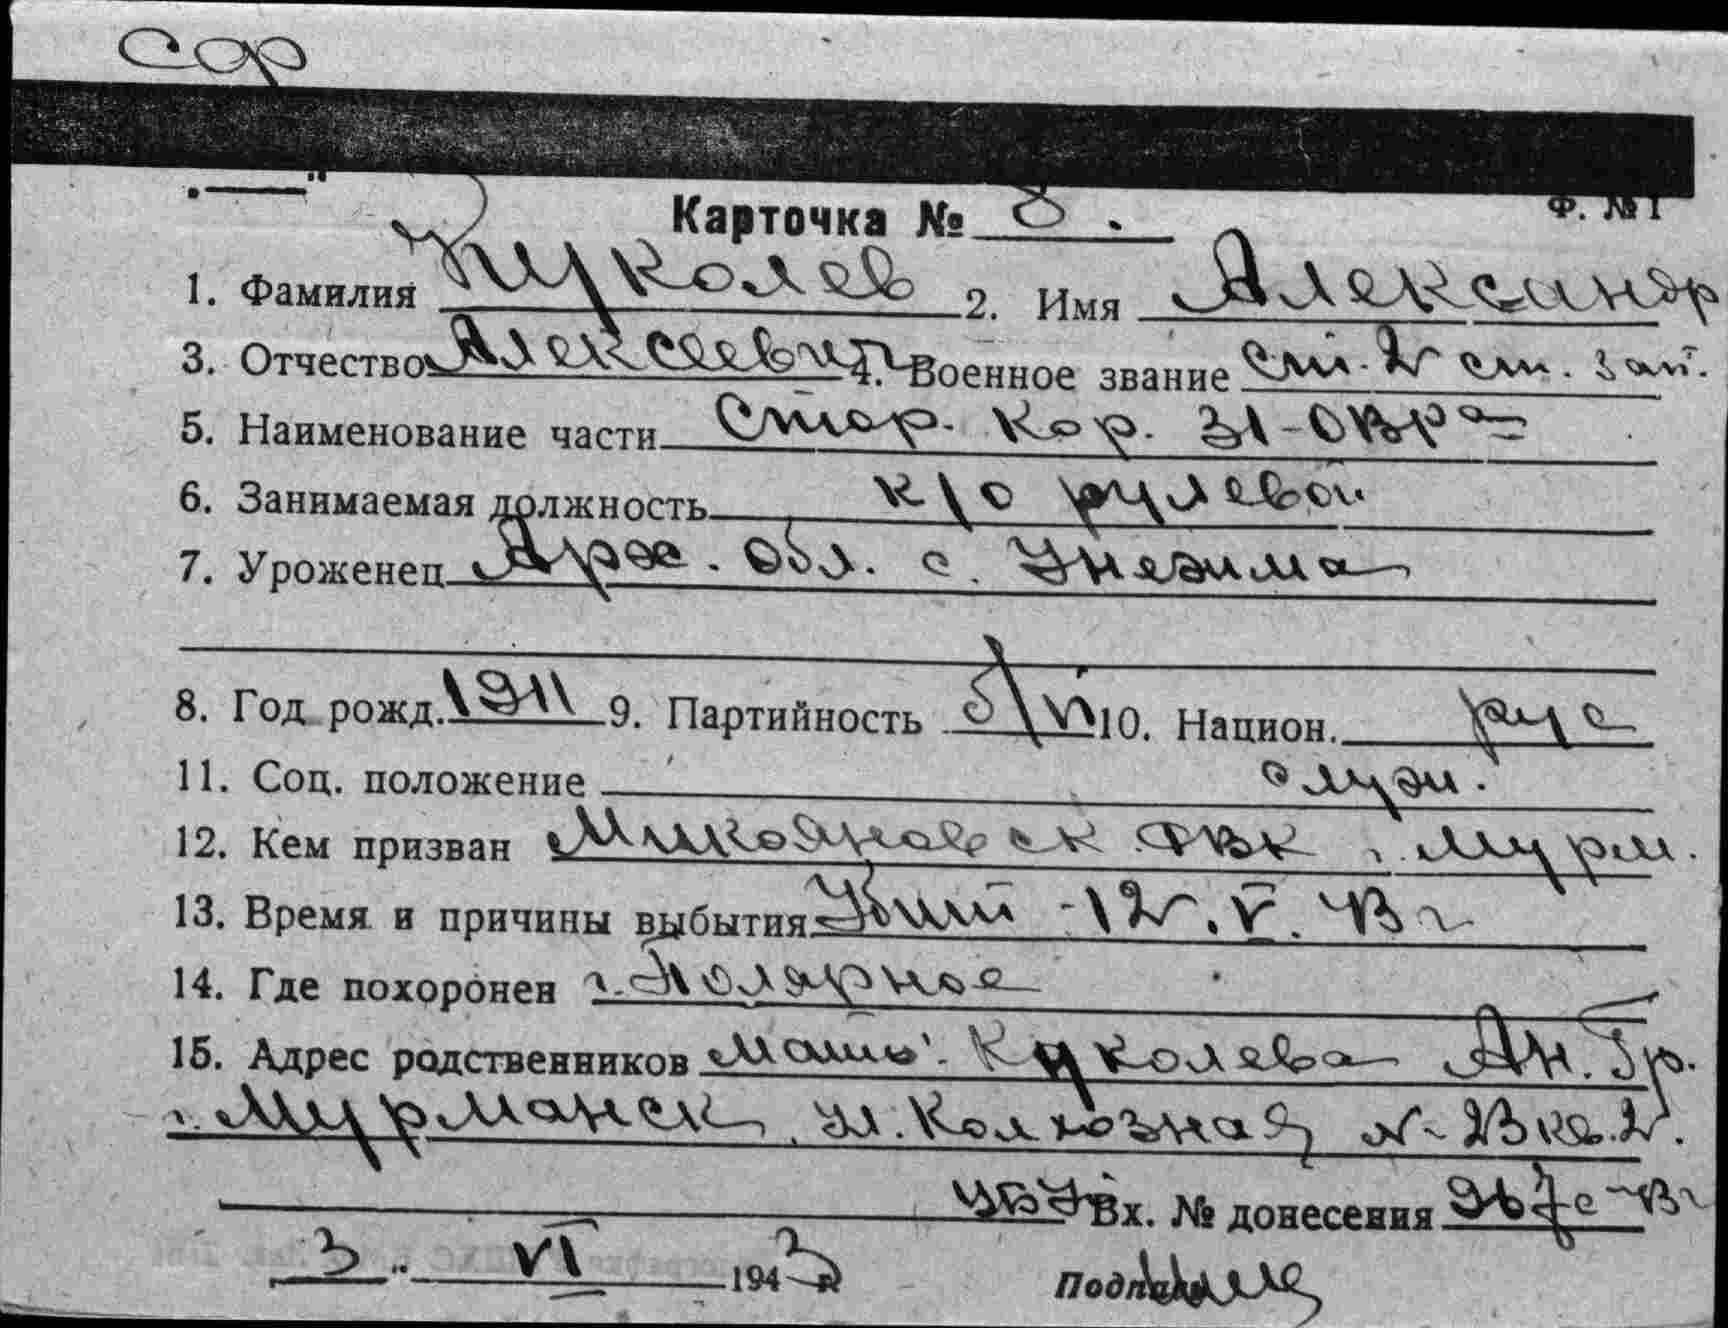 сор
Карточка № 8.
Ф. № 1
1. Фамилия Куколев 2. Имя Александр
3. Отчество Алексеевич 4. Военное звание ст. 2 ст. зап.
5. Наименование части Стор. кор. 31-ОВРа
6. Занимаемая должность к/о рулевой
7. Уроженец Арх. обл. с. Унежма
8. Год рожд. 1911 9. Партийность б/п 10. Национ. рус
11. Соц. положение служ.
12. Кем призван Микояновск РВК г. Мурм.
13. Время и причины выбытия Убит 12.V.43 г
14. Где похоронен г. Полярное
15. Адрес родственников мать: Куколева Ан. Гр.
г. Мурманск, ул. Колхозная № 23 кв. 2.
Вх. № донесения
„ 3 " VI 1943 г.
Подпись